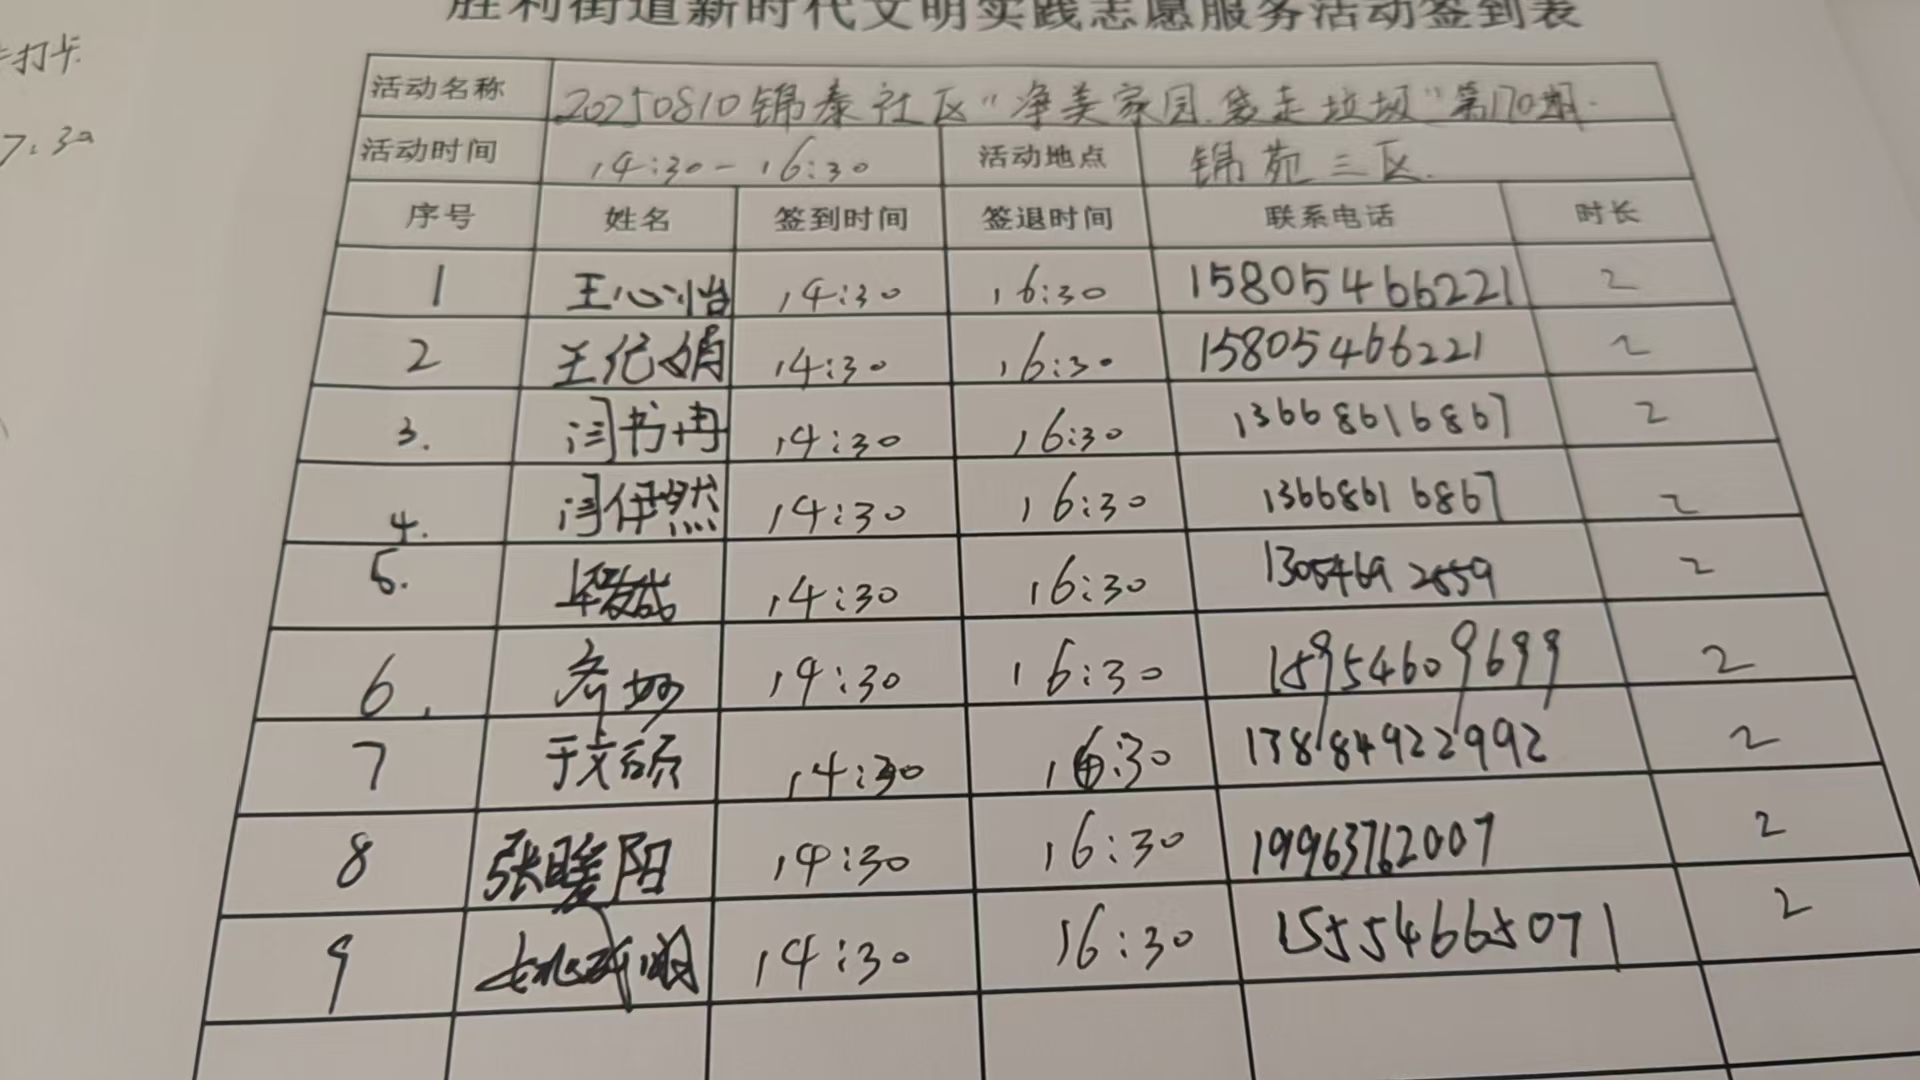 胜利街道新时代文明实践志愿服务活动签到表
打卡
7:30
活动名称 20250810锦泰社区"净美家园.袋走垃圾"第170期.
活动时间 14:30-16:30 活动地点 锦苑三区.
序号 姓名 签到时间 签退时间 联系电话 时长
1 王心怡 14:30 16:30 15805466221 2
2 王纪娟 14:30 16:30 15805466221 2
3. 闫书冉 14:30 16:30 13668616867 2
4. 闫伊然 14:30 16:30 13668616867 2
5. 14:30 16:30 13054692559 2
6. 14:30 16:30 15954609699 2
7 于文硕 14:30 16:30 13884922992 2
8 张暖阳 14:30 16:30 19963762007 2
9 14:30 16:30 15554665071 2